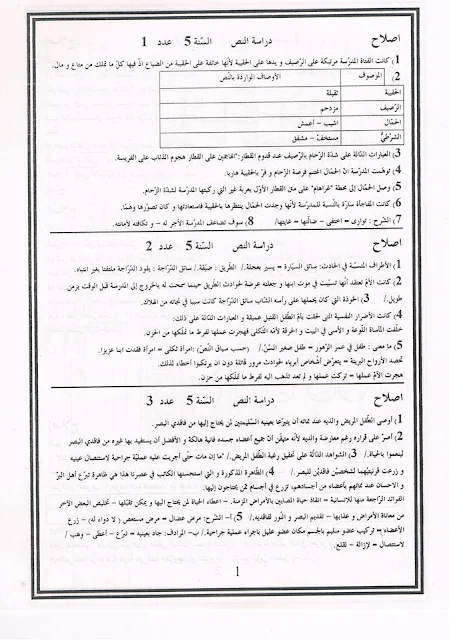 اصلاح دراسة النص السّنة 5 عدد 1
1) كانت الفتاة المدرّسة مرتبكة على الرّصيف و يدها على الحقيبة لأنها خائفة على الحقيبة من الضياع اذ فيها كلّ ما تملك من متاع و مال.
2) الموصوف الأوصاف الواردة بالنّص
الحقيبة ثقيلة
الرّصيف مزدحم
الحمّال اشيب - أعمش
الشرطيّ مستخفّ - مشفق
3) العبارات الدّالة على شدّة الزّحام بالرّصيف عند قدوم القطار: الهاجمين على القطار هجوم الذئاب على الفريسة.
4) توهّمت المدرسة انّ الحمّال اغتنم فرصة الزّحام و فرّ بالحقيبة هاربا.
5) وصل الحمّال إلى محطّة "غراهام" على متن القطار الأوّل بعربة غير التي ركبتها المدرسة لشدّة الزّحام.
6) كانت المفاجأة سارّة بالنّسبة للمدرسة لأنّها وجدت الحمّال ينتظرها بالحقيبة فاستعادتها و كان تصوّرها وهما.
7) الشّرح : توارى = اختفى - ضالّتها = غايتها/ 8) سوف تضاعف المدرسة الأجر له – و تكافئه لأمانته.
اصلاح دراسة النص السّنة 5 عدد 2
1) الأطراف المتسبّبة في الحادث: سائق السيارة = يسير بعجلة./ الطّريق : ضيّقة./ سائق الدرّاجة : يقود الدّراجة ملتفتا بغير انتباه.
2) كانت الأمّ تعتقد أنّها تسبّبت في موت ابنها و جعلته عرضة لحوادث الطّريق حينما سمحت له بالخروج إلى المدرسة قبل الوقت بزمن
طويل./ 3) الخوذة التي كان يحملها على رأسه الشّاب سائق الدّراجة كانت سببا في نجاته من الهلاك.
4) كانت الأضرار النفسية التي لحقت بأمّ الطّفل القتيل عميقة و العبارات الدّالة على ذلك:
خلّفت المأساة اللّوعة و الأسى في البيت و الحرقة لأمّه الثّكلى فهجرت عملها لفرط ما تملّكها من الحزن.
5) ما معنى : طفل في عمر الزّهور = طفل صغير السنّ./ (حسب سياق النّص): امرأة ثكلى = امرأة فقدت ابنا عزيزا.
تحصد الأرواح البريئة = يتعرّض أشخاص أبرياء لحوادث مرور قاتلة دون ان يرتكبوا أخطاء لذلك.
هجرت الأمّ عملها = تركت عملها و لم تعد تذهب اليه لفرط ما تملّكها من حزن.
اصلاح دراسة النص السّنة 5 عدد 3
1) أوصى الطّفل المريض والديه عند مماته أن يتبرّعا بعينيه السّليمتين لمن يحتاج إليها من فاقدي البصر.
2) أصرّ على قراره رغم معارضة والديه لأنّه متيقّن أنّ جميع أعضاء جسده فانية هالكة و الأفضل أن يستفيد بها غيره من فاقدي البصر
لينعموا بالحياة./ 3) الشواهد الدّالة على تحقيق رغبة الطّفل المريض./ "ما إن مات حتّى أجريت عليه عمليّة جراحية لاستئصال عينيه
و زرعت قرنيتيهما لشخصيّن فاقديّن للبصر./ 4) الظّاهرة المذكورة و التي استحسنها الكاتب في عصرنا هذا هي ظاهرة تبرّع أهل البرّ
و الاحسان عند مماتهم بأعضاء من أجسادهم، تزرع في أجسام ممن يحتاجون إليها.
الفوائد الرّاجعة منها للانسانية = انقاذ حياة المصابين بالأمراض المزمنة. – اعطاء الحياة لمن يحتاج اليها و يمكن نقلها – تخليص البعض الآخر
من معاناة الأمراض و عذابها – تقديم البصر و النّور لفاقديه./ 5) أ- الشّرح: مرض عضال = مرض مستعص ( لا دواء له) – زرع
الأعضاء = تركيب عضو سليم بالجسم مكان عضو عليل باجراء عملية جراحية./ ب- المرادف: جاد بعينيه = تبرّع – أعطى – وهب /
لاستئصال = لإزالة – لقلع.
1